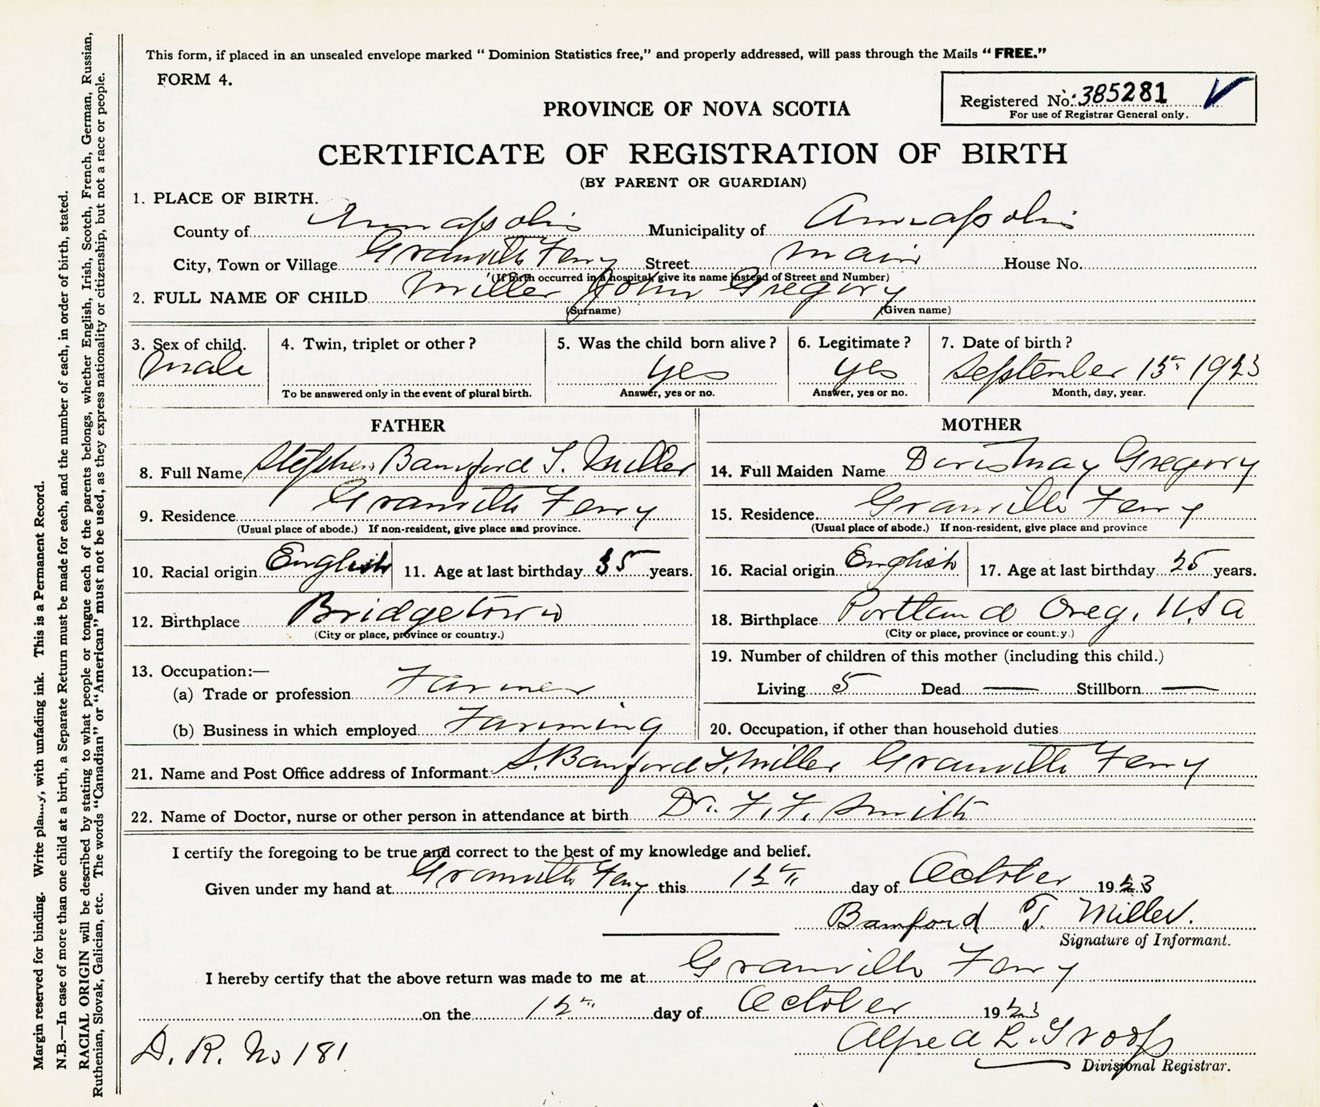 This form, if placed in an unsealed envelope marked "Dominion Statistics free," and properly addressed, will pass through the Mails "FREE."
FORM 4.
Registered No. 385281
For use of Registrar General only.
PROVINCE OF NOVA SCOTIA
CERTIFICATE OF REGISTRATION OF BIRTH
(BY PARENT OR GUARDIAN)
1. PLACE OF BIRTH.
County of Annapolis Municipality of Annapolis
City, Town or Village Granville Ferry Street Main House No.
(If birth occurred in a hospital give its name instead of Street and Number)
2. FULL NAME OF CHILD Miller John Gregory
(Surname) (Given name)
3. Sex of child. Male
4. Twin, triplet or other?
To be answered only in the event of plural birth.
5. Was the child born alive? yes
Answer, yes or no.
6. Legitimate? yes
Answer, yes or no.
7. Date of birth? September 15th 1923
Month, day, year.
FATHER
8. Full Name Stephen Bamford T. Miller
9. Residence Granville Ferry
(Usual place of abode.) If non-resident, give place and province.
10. Racial origin English 11. Age at last birthday 35 years.
12. Birthplace Bridgetown
(City or place, province or country.)
13. Occupation:—
(a) Trade or profession Farmer
(b) Business in which employed Farming
MOTHER
14. Full Maiden Name Doris May Gregory
15. Residence Granville Ferry
(Usual place of abode.) If non-resident, give place and province
16. Racial origin English 17. Age at last birthday 25 years.
18. Birthplace Portland Oreg, USA
(City or place, province or country.)
19. Number of children of this mother (including this child.)
Living 5 Dead — Stillborn —
20. Occupation, if other than household duties
21. Name and Post Office address of Informant S. Bamford T. Miller Granville Ferry
22. Name of Doctor, nurse or other person in attendance at birth Dr. F. F. Smith
I certify the foregoing to be true and correct to the best of my knowledge and belief.
Given under my hand at Granville Ferry this 12th day of October 1923
Bamford T. Miller.
Signature of Informant.
I hereby certify that the above return was made to me at Granville Ferry
on the 12th day of October 1923
Alfred L. Troop
Divisional Registrar.
D. R. No 181
Margin reserved for binding. Write plainly, with unfading ink. This is a Permanent Record.
N.B.—In case of more than one child at a birth, a Separate Return must be made for each, and the number of each, in order of birth, stated.
RACIAL ORIGIN will be described by stating to what people or tongue each of the parents belongs, whether English, Irish, Scotch, French, German, Russian,
Ruthenian, Slovak, Galician, etc. The words "Canadian" or "American" must not be used, as they express nationality or citizenship, but not a race or people.